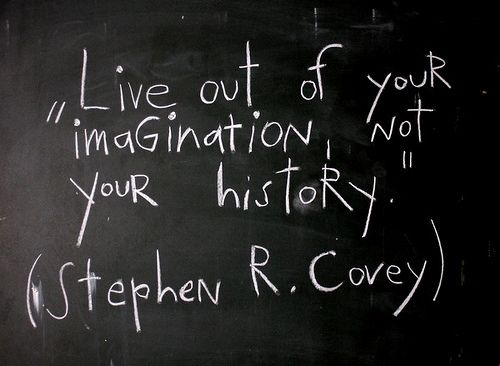 „Live out of your
imaGination, not
your history."
(Stephen R. Covey)